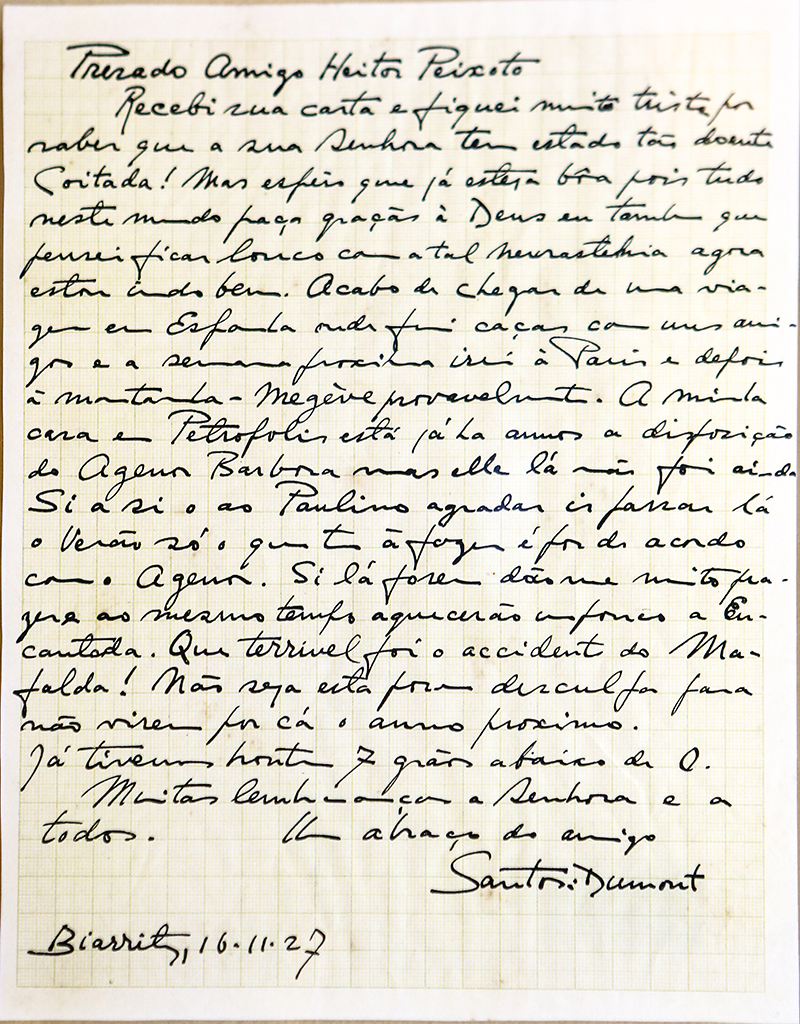 Prezado Amigo Heitor Peixoto
Recebi sua carta e fiquei muito triste por
saber que a sua Senhora tem estado tão doente
Coitada! Mas espero que já esteja bôa pois tudo
neste mundo paça graças à Deus eu tambem que
pensei ficar louco com a tal neurasthenia agora
estou indo bem. Acabo de chegar de uma via-
gem em Espanha onde fui caçar com uns ami-
gos e a semana proxima irei à Paris e depois
à montanha - Megève provavelment. A minha
casa em Petropolis está já ha annos a disposição
do Agenor Barbosa mas elle lá não foi ainda
Si a si o ao Paulino agradar ir passar lá
o Verão só o que tem à fazer é por de acordo
com o Agenor. Si lá forem dão me muito pra-
zer e ao mesmo tempo aquecerão um pouco a En-
cantada. Que terrivel foi o accident do Ma-
falda! Não seja esta porem desculpa para
não virem por cá o anno proximo.
Já tivemos hontem 7 gráos abaixo de 0.
Muitas lembranças a Senhora e a
todos. Um abraço do amigo
Santos=Dumont
Biarritz, 16.11.27